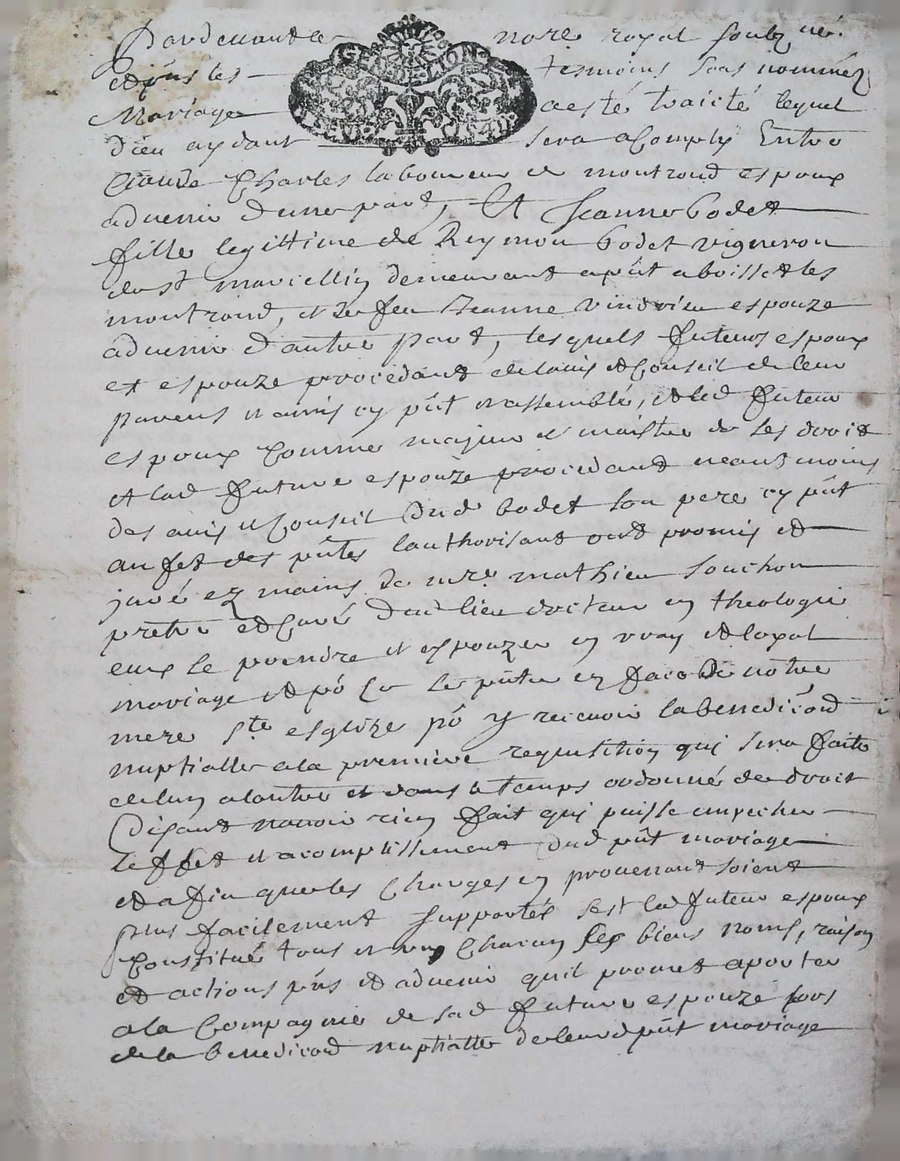 Pardevant le nore royal soubz né.
et p̃ns les tesmoins bas nommés
GEN. DE LION
Mariage a esté traicté lequel
dieu aydant sera acomply Entre
Claude Charles laboureur de montrond espoux
advenir d'une part, Et Jeanne bodet
fille legittime de Reymon bodet vigneron
de st marcellin demeurant a p̃nt a boisset les
montrond, et de feu Jeanne espouze
advenir d'autre part, lesquels futeurs espoux
et espouze procedant de lavis et Conseil de leur
parens et amis cy p̃nt et assemblé, et led futeur
espoux Comme majeur et maistre de ses droits
et lad future espouze procedant neantmoins
des avis et Conseil dud bodet son pere cy p̃nt
au fet des p̃ntes lauthorisant ont promis et
juré ez mains de mre mathieu souchon
prêtre et Curé dud lieu docteur en theologie
eux se prendre et espouzer en vray et loyal
mariage et po Ce se p̃nter en face de notre
mere ste esglize po y recevoir la benediõn
nuptialle a la premiere requisition qui sera faite
de lun a lautre et dans le temps ordonné de droit
Disant navoir rien fait qui puisse empecher
leffet et acomplissement dud p̃nt mariage
et afin que les Charges en provenant soient
plus facilement supportés sest led futeur espoux
Constitué tous et Chacun ses biens noms, raison
et actions p̃ns et advenir quil promet aporter
a la Compagnie de sad future espouze lors
de la benediõn nuptialle de leurd p̃nt mariage